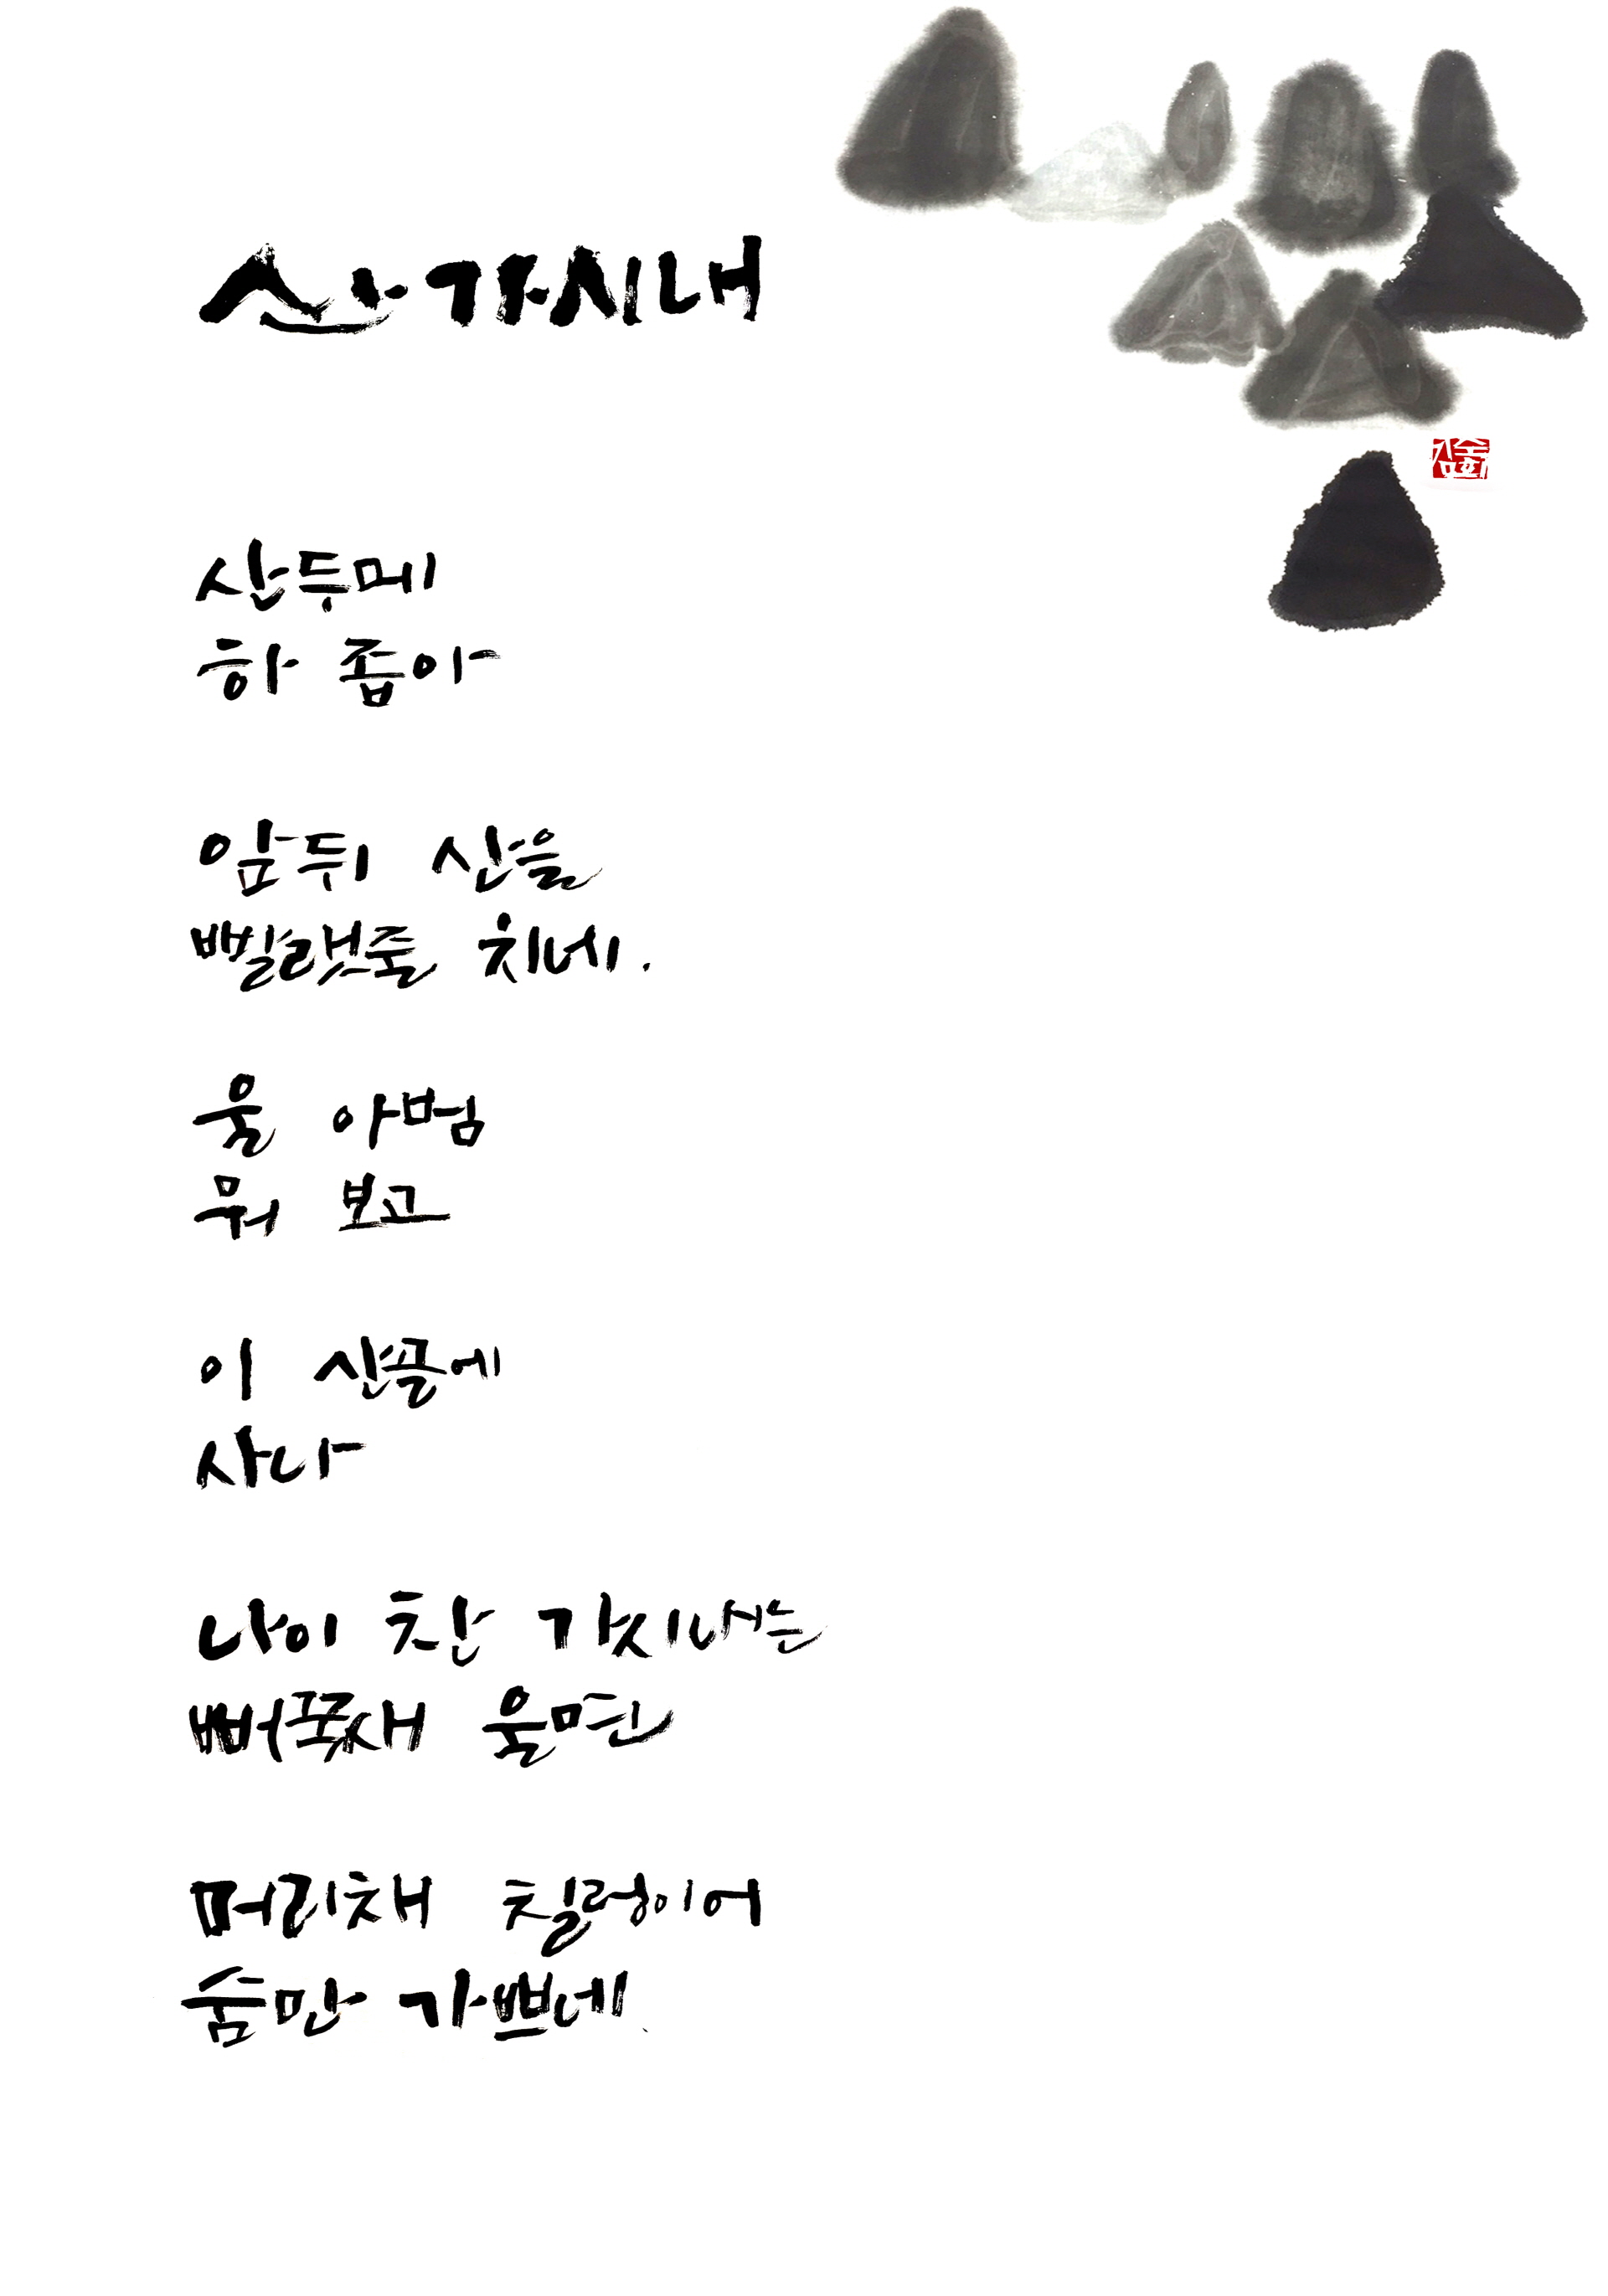 산가시내
산두메
하 좁아
앞뒤 산을
빨랫줄 치네.
울 아범
뭐 보고
이 산골에
사나
나이 찬 가시내는
뻐꾹새 울면
머리채 칠렁이어
숨만 가쁘네.